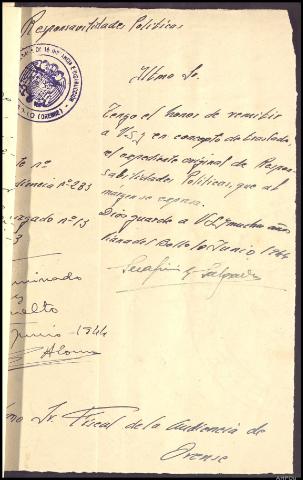 Responsabilidades Politicas
Ilmo Sr.
Tengo el honor de remitir
a V.S.I en concepto de traslado,
el expediente original de Respon-
sabilidades Politicas, que al
márgen se expresa.
Dios guarde a VSI muchos años
Viana del Bollo 10 Junio 1944
Serafin G Salgado
to nº
diencia nº 283
zgado nº 13
3
minado
es
uelto
Junio 1944
Alonso
mo Sr. Fiscal de la Audiencia de
Orense